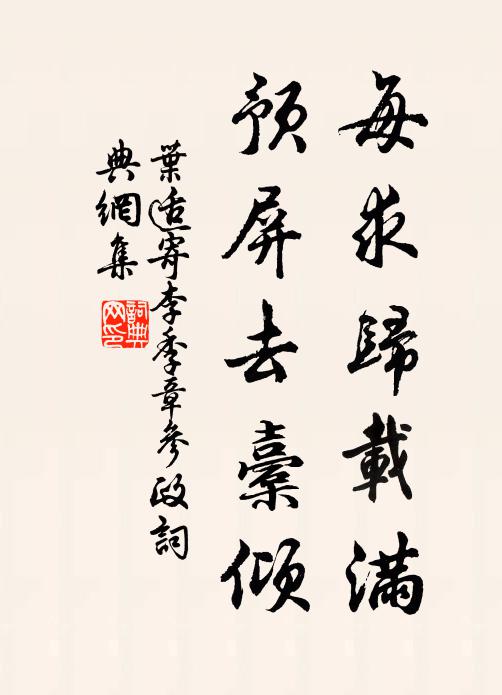 每求歸載滿
預屏去橐傾
葉適寄李季章參政詞
典網集
詞典
网印